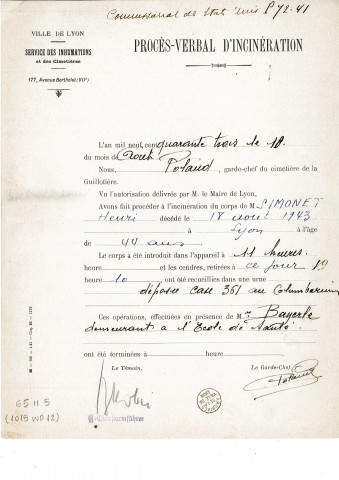 Commissariat de Etat Civil P 72-41
VILLE DE LYON
SERVICE DES INHUMATIONS
et des Cimetières
177, Avenue Berthelot (VIIe)
PROCÈS-VERBAL D'INCINÉRATION
L'an mil neuf cent quarante trois le 18
du mois de Août
Nous, Poland, garde-chef du cimetière de la
Guillotière.
Vu l'autorisation délivrée par M. le Maire de Lyon,
Avons fait procéder à l'incinération du corps de M. SIMONET
Henri décédé le 18 août 1943
à Lyon à l'âge
de 44 ans
Le corps a été introduit dans l'appareil à 11 heures
heure et les cendres, retirées à ce jour 19
heure 10 ont été recueillies dans une urne
déposée case 361 au Columbarium
Ces opérations, effectuées en présence de M. Bayerle
demeurant à l'Ecole de Santé
ont été terminées à heure
Le Témoin,
Le Garde-Chef
65 II 5
(1015 WP 12)